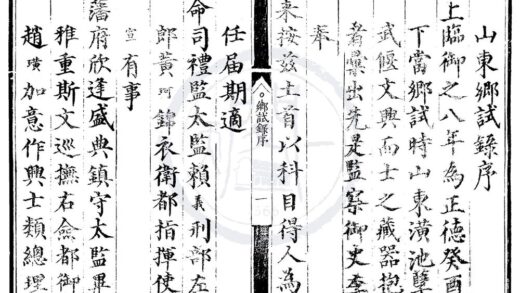 山東鄉試錄序
上臨御之八年為正德癸酉
下當鄉試時山東潢池孽
武偃文興而士之藏器抱
出先是監察御史李
奉
來按茲土首以科目得人為
鄉試錄序 一
任屆期適
命司禮監太監賴義刑部左
郎黃珂錦衣衛都指揮使
宣有事
藩府欣逢盛典鎮守太監畢
雅重斯文巡撫右僉都御
趙璜加意作興士類總理